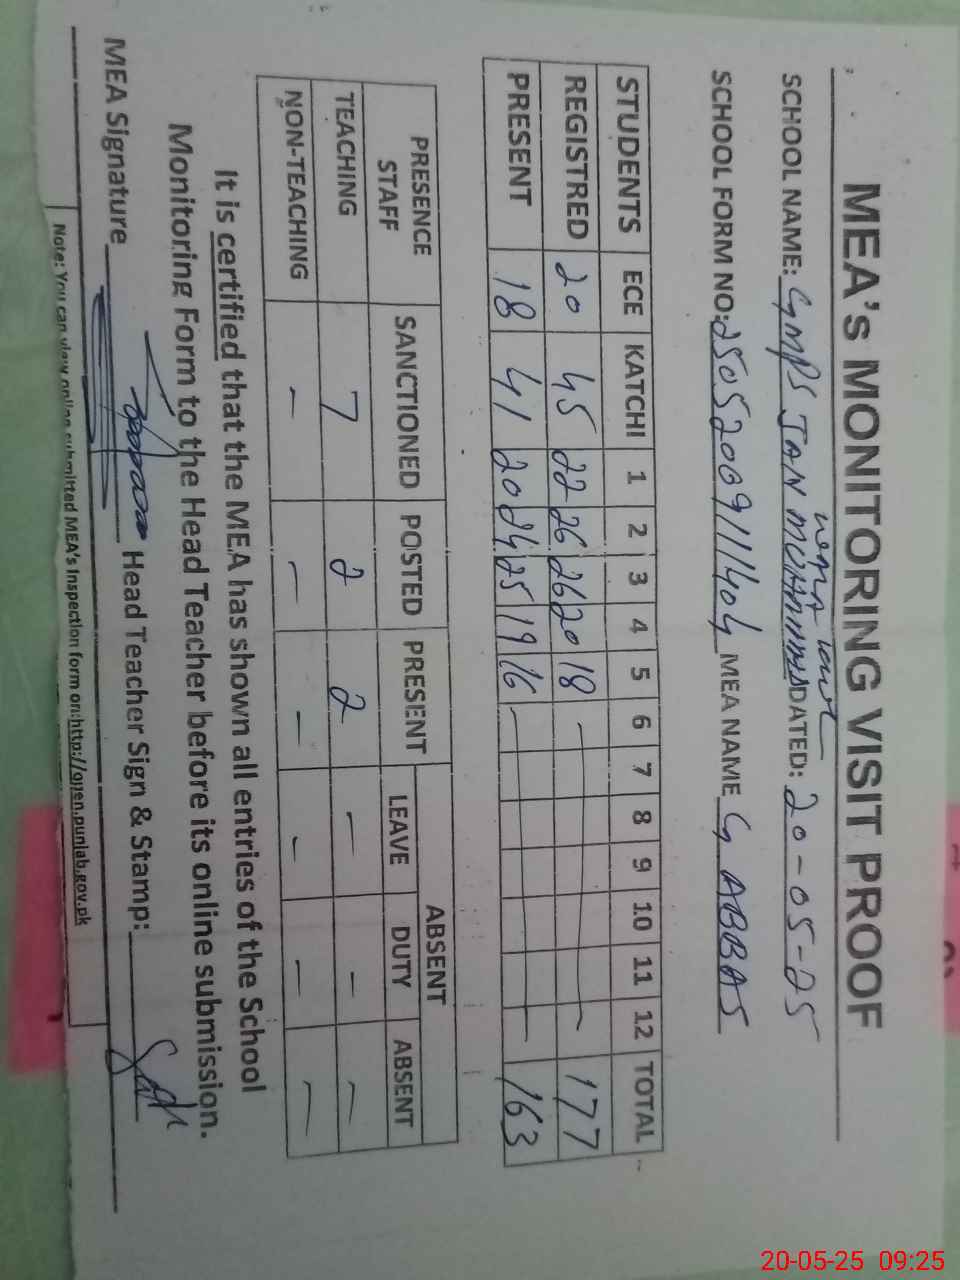 MEA's MONITORING VISIT PROOF
SCHOOL NAME: GMPS JAN MUHAMMAD DATED: 20-05-25
SCHOOL FORM NO: 25052009111404 MEA NAME G ABBAS
STUDENTS ECE KATCHI 1 2 3 4 5 6 7 8 9 10 11 12 TOTAL
REGISTRED 20 45 22 26 26 20 18 — 177
PRESENT 18 41 20 24 25 19 16 — 163
PRESENCE STAFF SANCTIONED POSTED PRESENT ABSENT
LEAVE DUTY ABSENT
TEACHING 7 2 2 — — —
NON-TEACHING — — — — — —
It is certified that the MEA has shown all entries of the School
Monitoring Form to the Head Teacher before its online submission.
MEA Signature Head Teacher Sign & Stamp:
Note: You can view online submitted MEA's Inspection form on: http://open.punjab.gov.pk
20-05-25 09:25